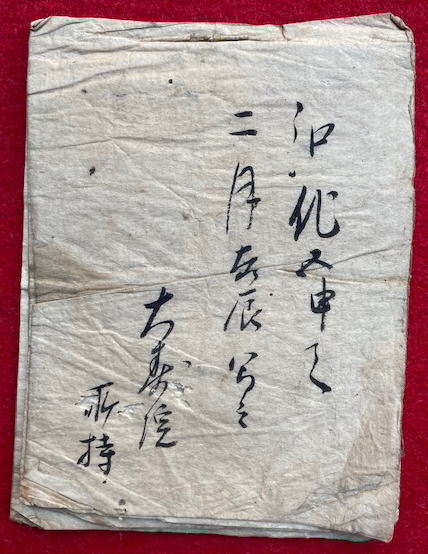 弘化五申天
二月吉辰写之
大寿院
所持